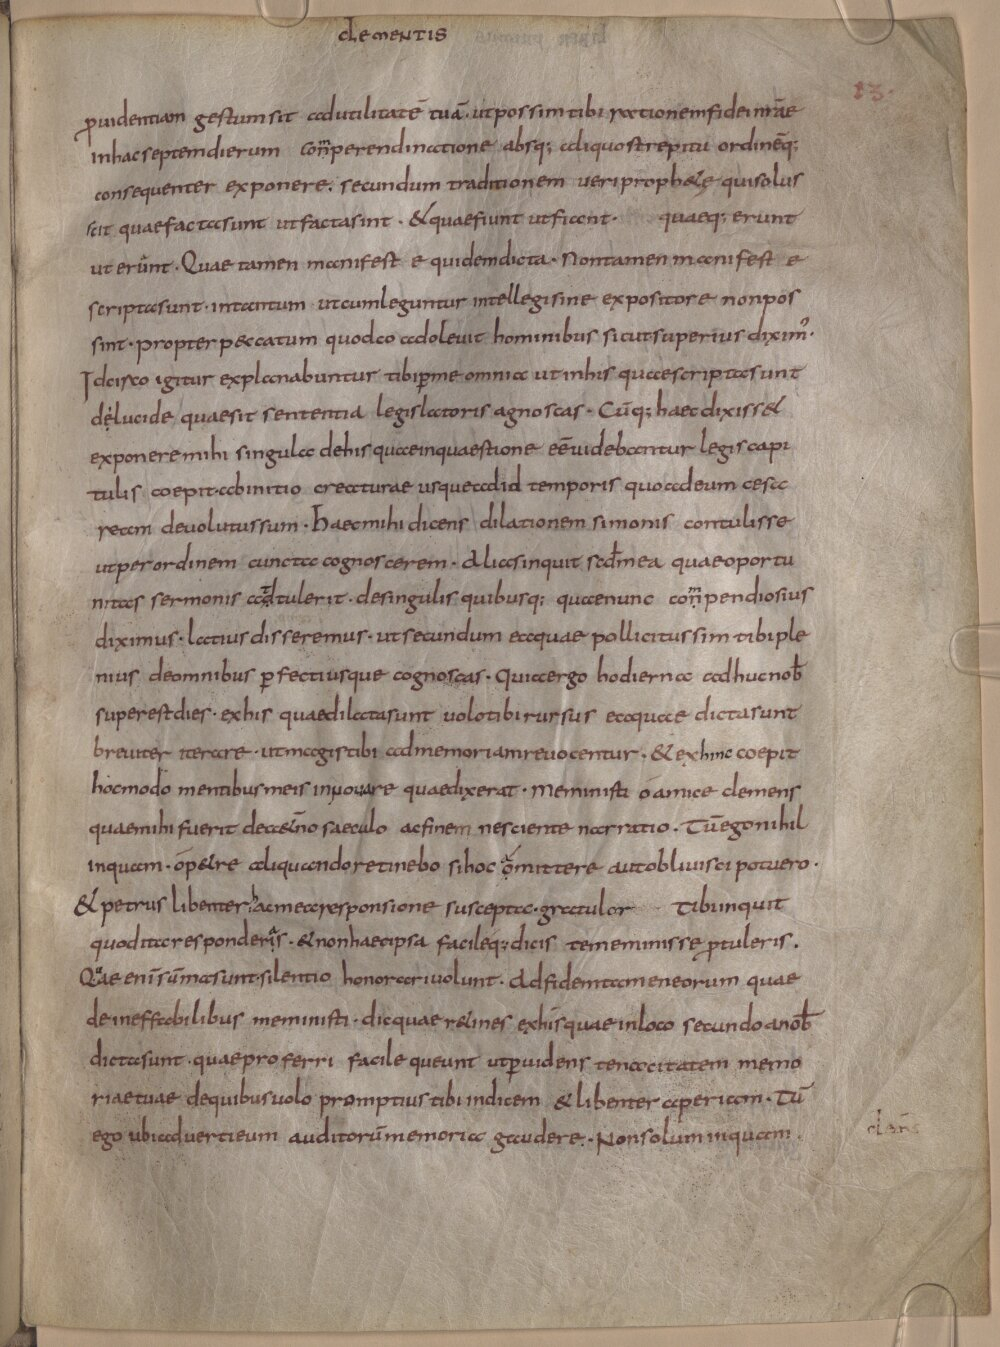 clementis
13.
ꝓuidentiam gestum sit ad utilitatē tuā. ut possim tibi rationem fidei nr̄ae
in hac septem dierum con̄perendinatione absq; aliquo strepitu ordinēq;
consequenter exponere. secundum traditionem ueri proph&ae qui solus
scit quae facta sunt ut facta sint. & quae fiunt ut fiant. quaeq; erunt
ut erunt. Quae tamen manifest e quidem dicta. Non tamen manifest e
scripta sunt. in tantum ut cum leguntur intellegi sine expositore non pos
sint. propter peccatum quod coadoleuit hominibus sicut superius dixim᾽.
Idcisco igitur explanabuntur tibi ꝑ me omnia ut in his quae scripta sunt
delucide quae sit sententia legislatoris agnoscas. Cūq; haec dixiss&
exponere mihi singula de his quae in quaestione eē uidebantur legis capi
tulis coepit ab initio creaturae usque ad id temporis quo ad eum cesa
ream deuolutus sum. Haec mihi dicens dilationem simonis contulisse
ut per ordinem cuncta cognoscerem. Alias inquit scd̄m ea quae oportu
nitas sermonis adtulerit. de singulis quibusq; quae nunc con̄pendiosius
diximus. latius disseremus. ut secundum ea quae pollicitus sim tibi ple
nius de omnibus ꝑfectiusque cognoscas. Quia ergo hodierna adhuc nob̄
superest dies. ex his quae dilata sunt uolo tibi rursus ea quae dicta sunt
breuiter iterare. ut magis tibi ad memoriam reuocentur. & ex hinc coepit
hoc modo mentibus meis innouare quae dixerat. Meministi o amice clemens
quae mihi fuerit de a&erno saeculo ac finem nesciente narratio. Tū ego nihil
inquam. o p&re aliquando retinebo si hoc omittere aut obliuisci potuero.
& petrus libenter hac mea responsione suscepta. gratulor Tibi inquit
quod ita responderis. & non haec ipsa facileq; dicis te meminisse ꝓtuleris.
Quae enī sūma sunt silentio honorari uolunt. Ad fidem tamen eorum quae
de ineffabilibus meministi. dic quae r&ines ex his quae in loco secundo a nob̄
dicta sunt. quae proferri facile queunt ut ꝓuidens tenacitatem memo
riae tuae de quibus uolo promptius tibi indicem & libenter aperiam. Tū
ego ubi aduerti eum auditorū memoria gaudere. Non solum inquam.